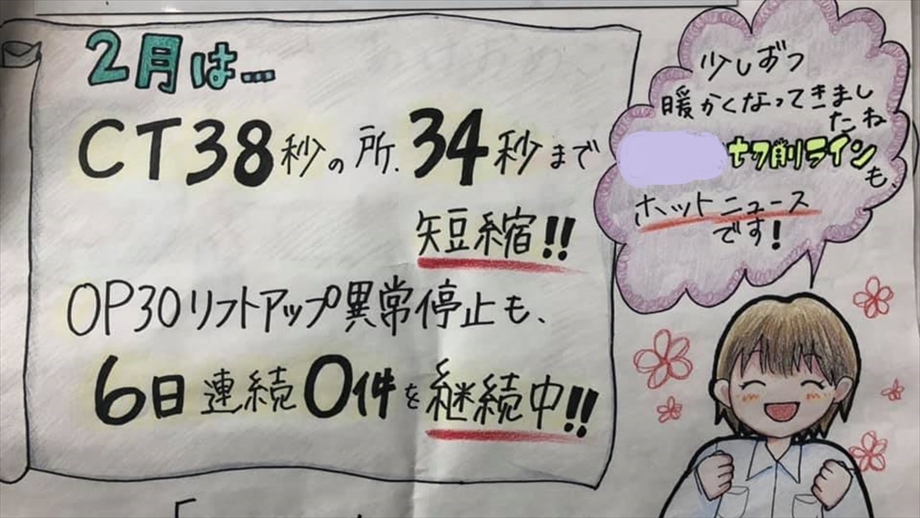 2月は…
CT38秒の所、34秒まで
短縮!!
OP30リフトアップ異常停止も、
6日連続0件を継続中!!
少しずつ
暖かくなってきまし
たね
切削ラインも、
ホットニュース
です!